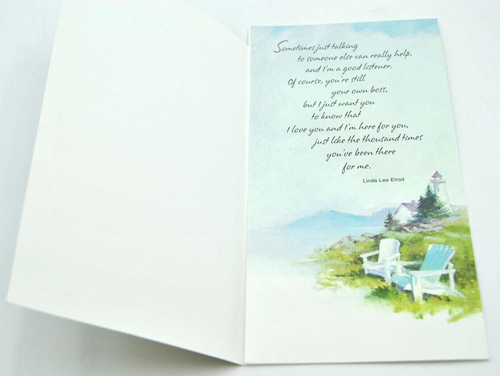 Sometimes just talking
to someone else can really help,
and I'm a good listener.
Of course, you're still
your own boss,
but I just want you
to know that
I love you and I'm here for you,
just like the thousand times
you've been there
for me.
Linda Lee Elrod